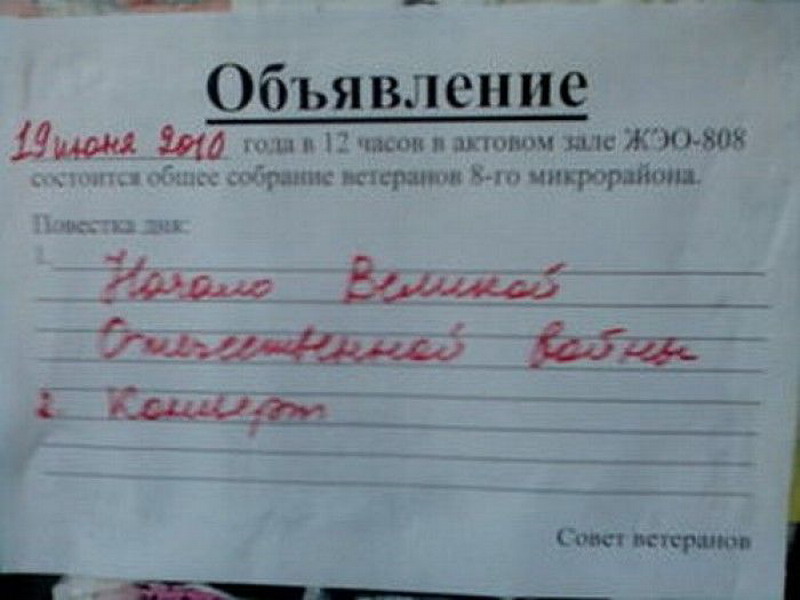 Объявление
19 июня 2010 года в 12 часов в актовом зале ЖЭО-808
состоится общее собрание ветеранов 8-го микрорайона.
Повестка дня:
1. Начало Великой
Отечественной войны
2. Концерт
Совет ветеранов